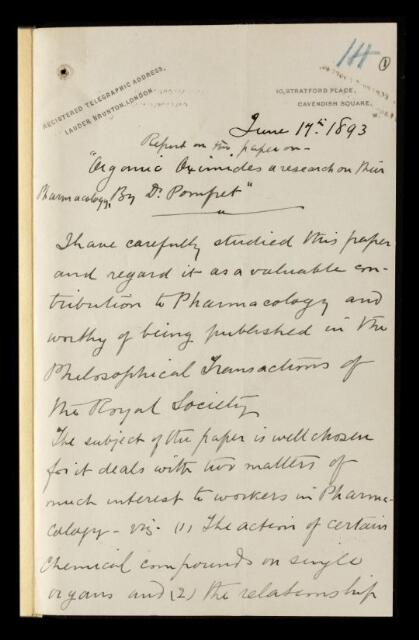 114 ①
REGISTERED TELEGRAPHIC ADDRESS,
LAUDER BRUNTON, LONDON.
10, STRATFORD PLACE,
CAVENDISH SQUARE,
June 17th 1893
Report on the paper on—
"Organic Oximides a research on their
Pharmacology, By Dr. Pomfret"
I have carefully studied this paper
and regard it as a valuable con-
tribution to Pharmacology and
worthy of being published in the
Philosophical Transactions of
the Royal Society
The subject of the paper is well chosen
for it deals with two matters of
much interest to workers in Pharma-
cology - viz. (1) The action of certain
chemical compounds on single
organs and (2) the relationship